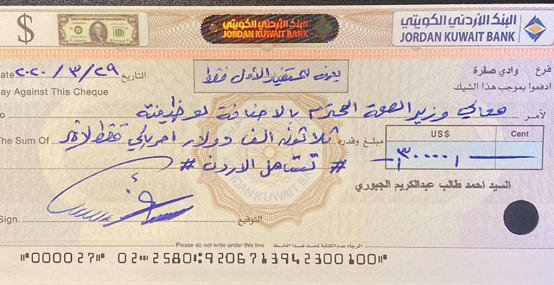 البنك الأردني الكويتي
JORDAN KUWAIT BANK
البنك الأردني الكويتي
JORDAN KUWAIT BANK
$
فرع وادي صقرة
يصرف للمستفيد الأول فقط
التاريخ ٢٠٢٠/٣/٢٩ Date
ادفعوا بموجب هذا الشيك
Pay Against This Cheque
لأمر معالي وزير الصحة المحترم بالاضافة لوظيفته To
مبلغ وقدره ثلاثون الف دولار امريكي فقط لاغير The Sum Of
US$ Cent
٣٠٠٠٠
# تستاهل الاردن #
السيد احمد طالب عبدالكريم الجبوري
التوقيع
Sign.
Please do not write under this line الرجاء عدم الكتابة تحت هذا الخط
⑈0000027⑈ 02⑉2580⑆9206713942300100⑈